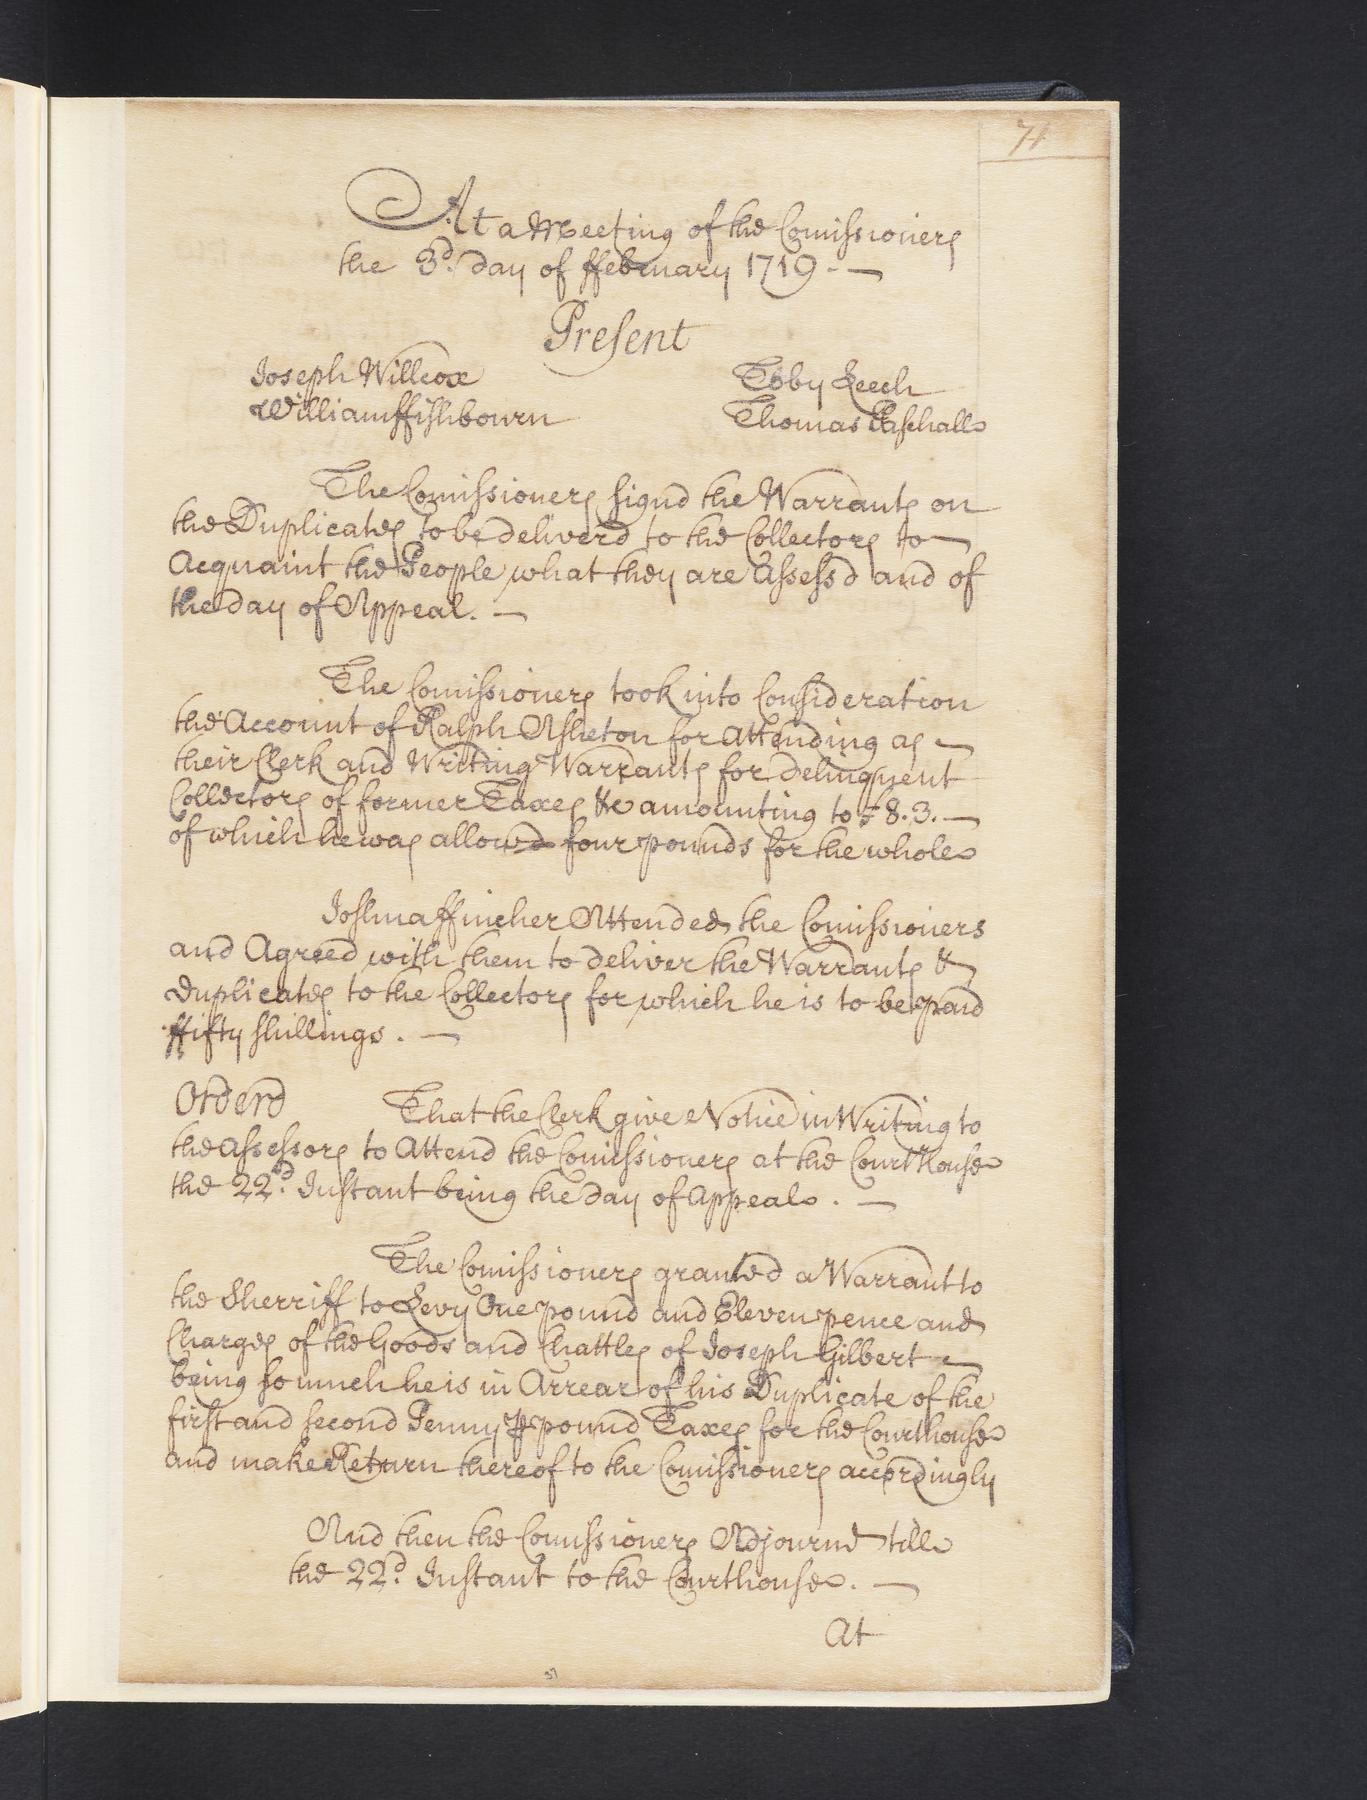 71
At a Meeting of the Comissioners
the 3d. day of ffebruary 1719. —
Present
Joseph Willcox Toby Leech
William ffishbourn Thomas Paschall
The Comissioners signd the Warrants on
the Duplicates to be deliverd to the Collectors to
Acquaint the People what they are Assessd and of
the day of Appeal. —
The Comissioners took into Consideration
the Account of Ralph Asheton for Attending as
their Clerk and Writing Warrants for delinquent
Collectors of former Taxes &c amounting to 8.3. —
of which he was allowd four pounds for the whole
Joshua ffincher Attended the Comissioners
and Agreed with them to deliver the Warrants &
Duplicates to the Collectors for which he is to be paid
ffifty shillings. —
Orderd That the Clerk give Notice in Writing to
the Assessors to Attend the Comissioners at the CourtHouse
the 22d. Instant being the day of Appeal. —
The Comissioners granted a Warrant to
the Sherriff to Levy One pound and Eleven pence and
Charges of the Goods and Chattles of Joseph Gilbert
being so much he is in Arrear of his Duplicate of the
first and second Penny ⅌ pound Taxes for the Courthouse
and make Return thereof to the Comissioners accordingly
And then the Comissioners Adjournd till
the 22d. Instant to the Courthouse. —
At